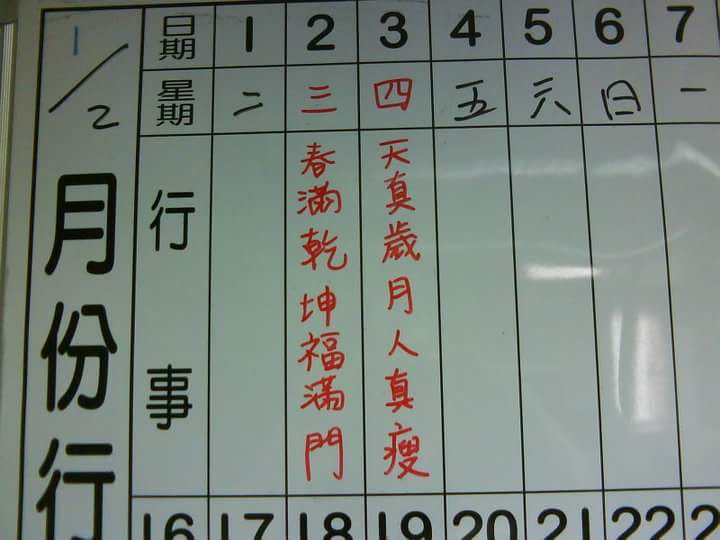 1/2
月份行
日期 1 2 3 4 5 6 7
星期 二 三 四 五 六 日 一
行事
春滿乾坤福滿門
天真歲月人真瘦
16 17 18 19 20 21 22 2